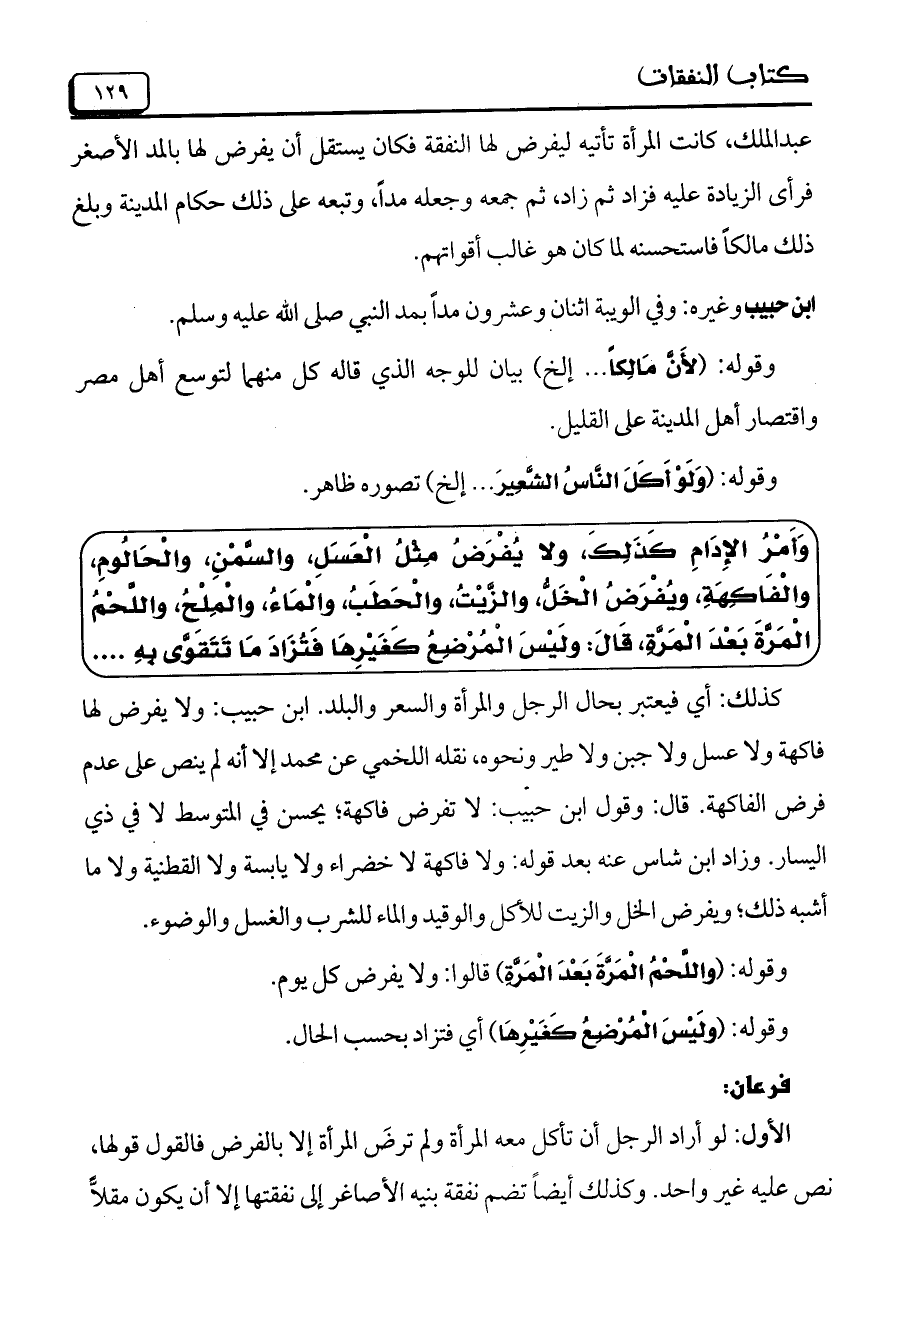 كتاب النفقات
١٢٩
عبدالملك، كانت المرأة تأتيه ليفرض لها النفقة فكان يستقل أن يفرض لها بالمد الأصغر
فرأى الزيادة عليه فزاد ثم زاد، ثم جمعه وجعله مداً، وتبعه على ذلك حكام المدينة وبلغ
ذلك مالكاً فاستحسنه لما كان هو غالب أقواتهم.
ابن حبيب وغيره: وفي الويبة اثنان وعشرون مداً بمد النبي صلى الله عليه وسلم.
وقوله: (لأَنَّ مَالِكاً... إلخ) بيان للوجه الذي قاله كل منهما لتوسع أهل مصر
واقتصار أهل المدينة على القليل.
وقوله: (وَلَوْ أَكَلَ النَّاسُ الشَّعِيرَ... إلخ) تصوره ظاهر.
وَأَمْرُ الإِدَامِ كَذَلِكَ، ولا يُفْرَضُ مِثْلُ الْعَسَلِ، والسَّمْنِ، والْحَالُومِ،
والْفَاكِهَةِ، ويُفْرَضُ الْخَلُّ، والزَّيْتُ، والْحَطَبُ، والْمَاءُ، والْمِلْحُ، واللَّحْمُ
الْمَرَّةَ بَعْدَ الْمَرَّةِ، قَالَ: ولَيْسَ الْمُرْضِعُ كَغَيْرِهَا فَتُزَادَ مَا تَتَقَوَّى بِهِ ....
كذلك: أي فيعتبر بحال الرجل والمرأة والسعر والبلد. ابن حبيب: ولا يفرض لها
فاكهة ولا عسل ولا جبن ولا طير ونحوه، نقله اللخمي عن محمد إلا أنه لم ينص على عدم
فرض الفاكهة. قال: وقول ابن حبيب: لا تفرض فاكهة؛ يحسن في المتوسط لا في ذي
اليسار. وزاد ابن شاس عنه بعد قوله: ولا فاكهة لا خضراء ولا يابسة ولا القطنية ولا ما
أشبه ذلك؛ ويفرض الخل والزيت للأكل والوقيد والماء للشرب والغسل والوضوء.
وقوله: (واللَّحْمُ الْمَرَّةَ بَعْدَ الْمَرَّةِ) قالوا: ولا يفرض كل يوم.
وقوله: (ولَيْسَ الْمُرْضِعُ كَغَيْرِهَا) أي فتزاد بحسب الحال.
فرعان:
الأول: لو أراد الرجل أن تأكل معه المرأة ولم ترضَ المرأة إلا بالفرض فالقول قولها،
نص عليه غير واحد. وكذلك أيضاً تضم نفقة بنيه الأصاغر إلى نفقتها إلا أن يكون مقلاًّ